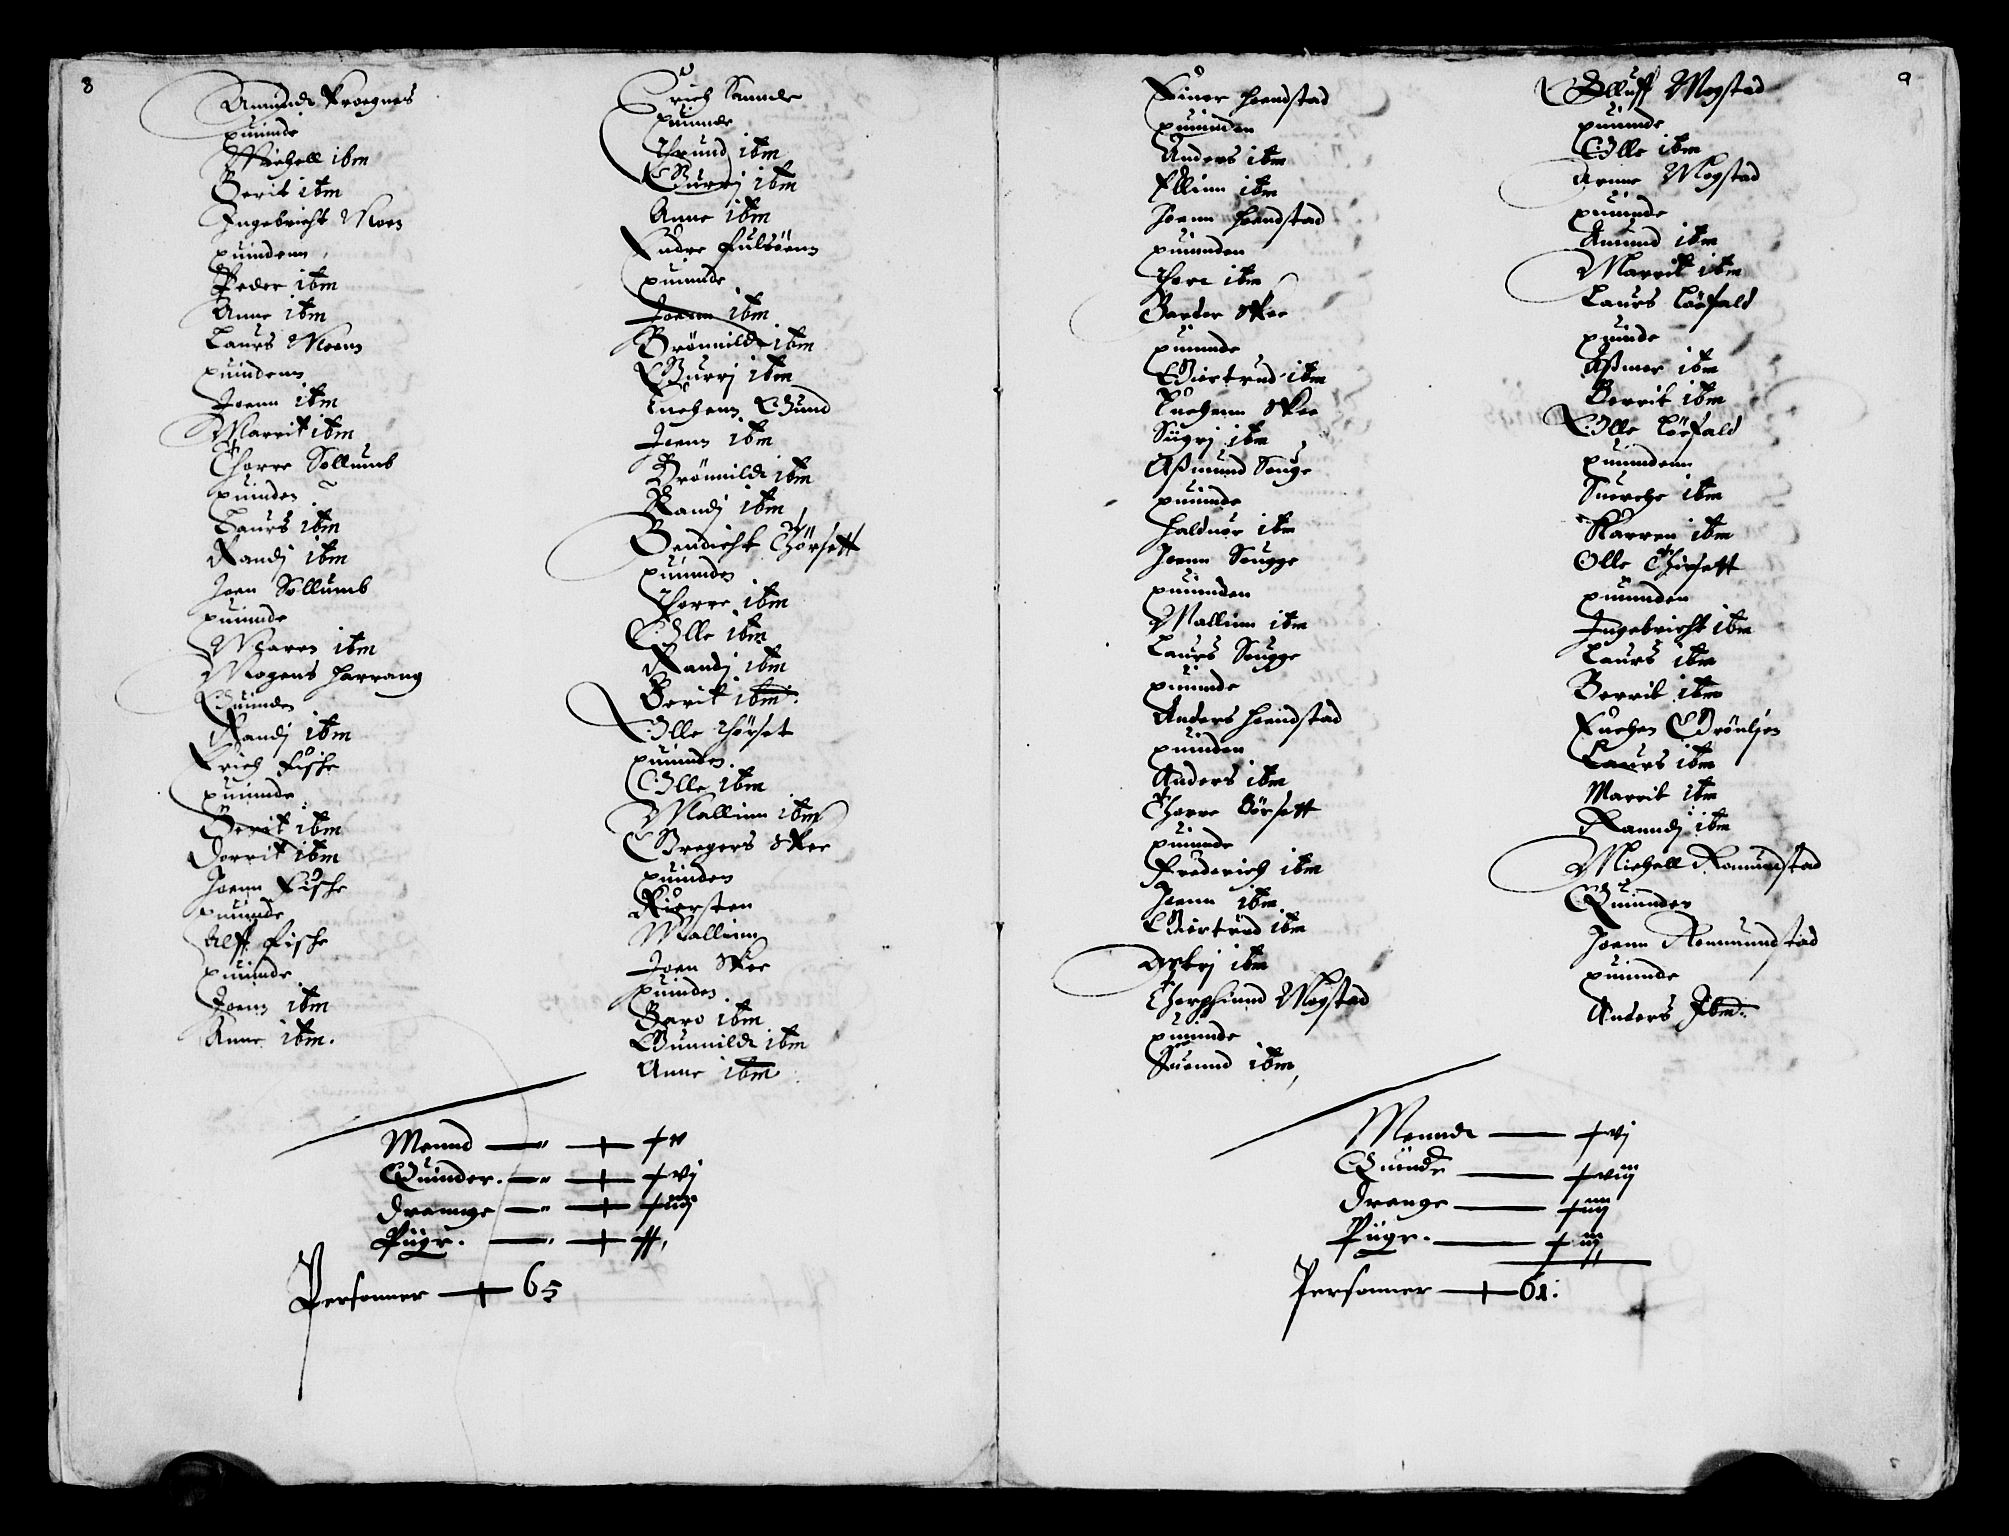 8
Amundt Proegnes
quinde
Michell ibm
Berit ibm
Ingebricht Moen
quindenn
Peder ibm
Anne ibm
Laurs Moenn
quindenn
Joenn ibm
Marrit ibm
Thorre Sollumb
quinden
Laurs ibm
Randj ibm
Joen Sollumb
quinde
Maren ibm
Mogens Harrang
Quinden
Randj ibm
Erich Fische
quinde
Berit ibm
Dorrit ibm
Joenn Fische
quinde
Alff Fische
quinde
Joenn ibm
Anne ibm.
Erich Sannde
quinde
Thrund ibm
Gurrj ibm
Anne ibm
Endre Fulsöenn
quinde
Joenn ibm
Brönnild ibm
Gurrj ibm
Enchenn Gund
Jenns ibm
Brönnild ibm
Randj ibm
Bendicht Thörsett
quinden
Thorre ibm
Olle ibm
Randj ibm
Berit ibm.
Olle Thörset
quinden.
Olle ibm
Mallinn ibm
Gregers Skee
quinden
Kiersten
Mallinn
Joen Skee
quinden
Baro ibm
Gunnild ibm
Anne ibm
Mennd xv
Quinder. xvj
Drannge xiiij
Piigr. xx,
Personner 65
9
Einer Hoenstad
quinden
Anders ibm
Ellinn ibm
Joenn Hoenstad
quinden
Thore ibm
Barder Skee
quinde
Giertrud ibm
Enchenn Skee
Siigrj ibm
Aßmund Souge
quinde
Halduor ibm
Joenn Sougge
quinden
Mallinn ibm
Laurs Sougge
quinde
Anders Hoenstad
quinden
Anders ibm
Thorre Börsett
quinde
Frederich ibm
Joenn ibm
Giertrud ibm
ibm
Mogstad
quinde
Suennd ibm,
Olluff Mogstad
quinde
Olle ibm
Arnne Mogstad
quinde
Amund ibm
Marrit ibm
Laurs Löefald
quinde
Aßmer ibm
Berrit ibm
Olle Löefald
quindenn
Suerche ibm
Karren ibm
Olle Thörsett
quinden
Ingebricht ibm
Laurs ibm
Berrit ibm
Enchen Gröntsen
Laurs ibm
Marrit ibm
Ranndj ibm
Michell Romundstad
Quinden
Joenn Rommundstad
quinde
Anders Ibm.
Menndt xvj
Quinde xviij
Drenge xiiij
Piigr. xiij
Personner 61.